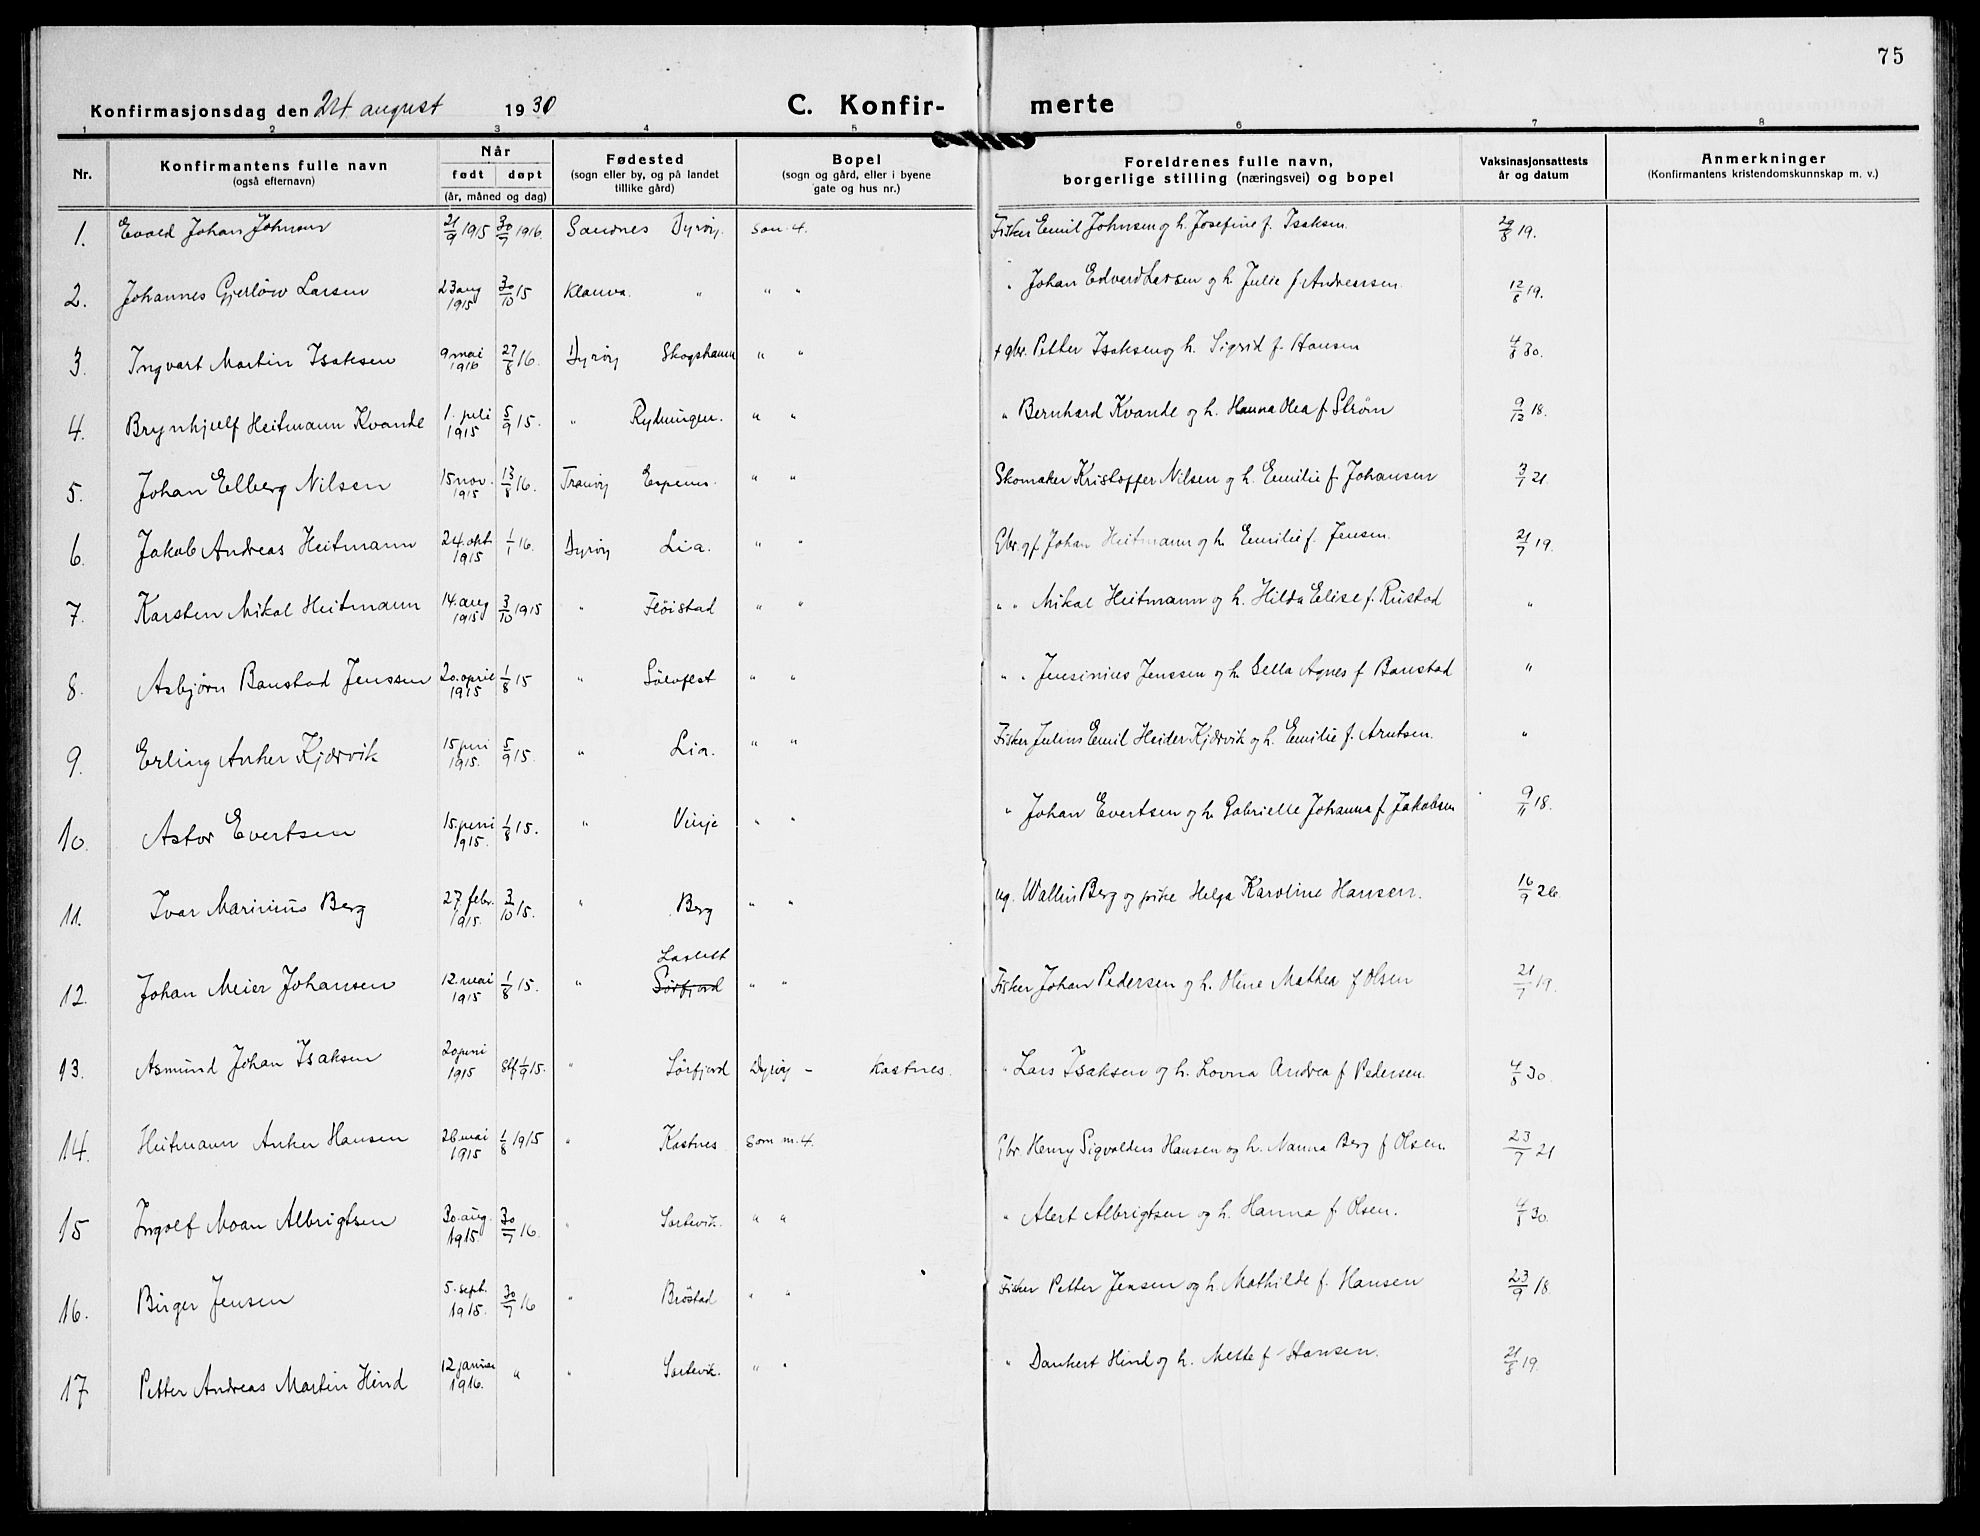 75
Konfirmasjonsdag den 24 august 1930
C. Konfir- merte
1 2 3 4 5 6 7 8
Nr.
Konfirmantens fulle navn
(også efternavn)
Når
født døpt
(år, måned og dag)
Fødested
(sogn eller by, og på landet
tillike gård)
Bopel
(sogn og gård, eller i byene
gate og hus nr.)
Foreldrenes fulle navn,
borgerlige stilling (næringsvei) og bopel
Vaksinasjonsattests
år og datum
Anmerkninger
(Konfirmantens kristendomskunnskap m. v.)
1. Evald Johan Johnsen 21/9 1915 30/7 1916. Sandnes Dyrøy. som 4. Fisker Emil Johnsen og h. Josefine f. Isaksen. 29/8 19.
2. Johannes Gjerløw Larsen 23 aug 1915 30/10 15 Klauva. " " " " Johan Edvard Larsen og h. Julie f. Andreassen. 12/8 19.
3. Ingvart Martin Isaksen 9 mai 1916 27/8 16. Dyrøy Skogshamn " " + gbr. Petter Isaksen og h. Sigrid f. Hansen 4/8 30.
4. Brynhjulf Heitmann Kvande 1. juli 1915 5/9 15. " Rydningen. " " " Bernhard Kvande og h. Hanna Olea f. Strøm 9/12 18.
5. Johan Elberg Nilsen 15 nov. 1915 13/8 16. Tranøy Espenes. " " Skomaker Kristoffer Nilsen og h. Emilie f. Johansen 3/7 21.
6. Jakob Andreas Heitmann 24. okt. 1915 1/1 16. Dyrøy Lia. " " Gbr. og f. Johan Heitmann og h. Emilie f. Jensen. 21/7 19.
7. Karsten Mikal Heitmann 14. aug 1915 3/10 1915 " Fløistad " " " " Mikal Heitmann og h. Hilda Elise f. Rustad "
8. Asbjørn Banstad Jenssen 20. april 1915 1/8 15 " Sølvfest " " " " Jensinius Jenssen og h. Sella Agnes f. Banstad "
9. Erling Anker Kjørvik 15 juni 1915. 5/9 15. " Lia. " " Fisker Julius Emil Heider Kjørvik og h. Emilie f. Arntsen. "
10. Astor Evertsen 15. juni 1915. 1/8 15. " Vinje " " " Johan Evertsen og h. Gabrielle Johanna f. Jakobsen 9/11 18.
11. Ivar Marinius Berg 27. febr. 1915. 3/10 15. " Berg " " ug. Wallin Berg og pike Helga Karoline Hansen. 16/9 26.
12. Johan Meier Johansen 12. mai 1915 1/8 15. " Sørfjord " " Fisker Johan Pedersen og h. Oline Mathea f. Olsen 21/7 19.
13. Asmund Johan Isaksen 20 juni 1915 1/9 15. " Sørfjord Dyrøy – Kastnes. " Lars Isaksen og h. Lovna Andrea f. Pedersen. 4/8 30.
14. Heitmann Anker Hansen 26 mai 1915 1/8 1915 " Kastnes som m. 4. Gbr. Henry Sigvaldus Hansen og h. Nanna Berg f. Olsen. 23/7 21
15 Ingolf Moan Albrigtsen 30. aug. 1915. 30/7 16. " Sortevik. " " " Alert Albrigtsen og h. Hanna f. Olsen. 4/8 30.
16. Birger Jensen 5. sept. 1915. 30/7 16 " Brøstad " " Fisker Petter Jensen og h. Mathilde f. Hansen 23/9 18.
17 Petter Andreas Martin Hind 12 januar 1916. " " Sortevik. " " " Dankert Hind og h. Mette f. Hansen. 21/8 19.